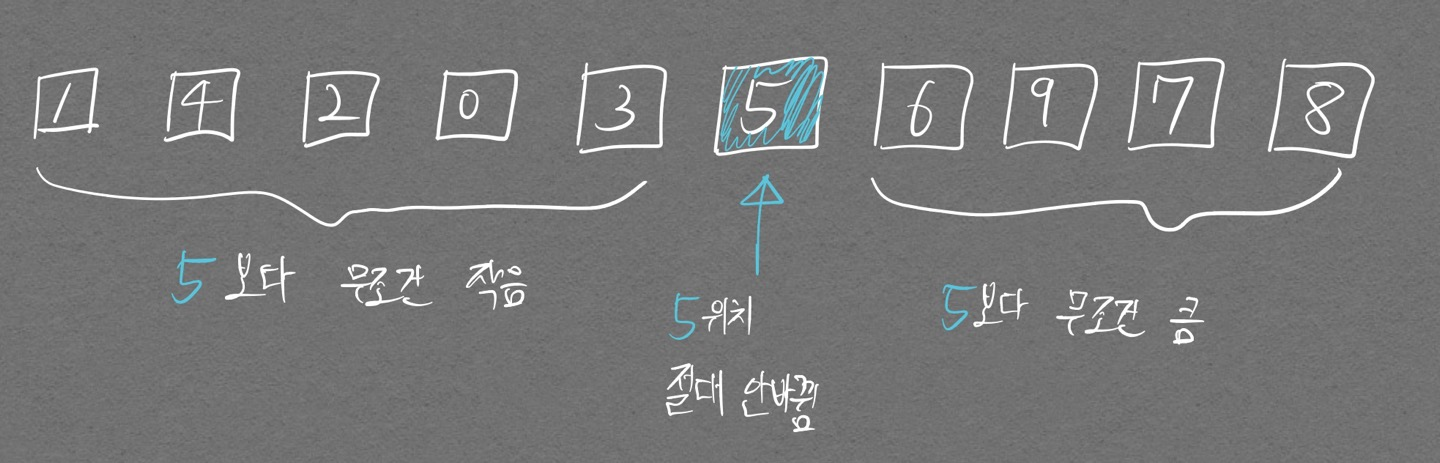 1 4 2 0 3 5 6 9 7 8
5보다 무조건 작음
5위치
절대 안바뀜
5보다 무조건 큼